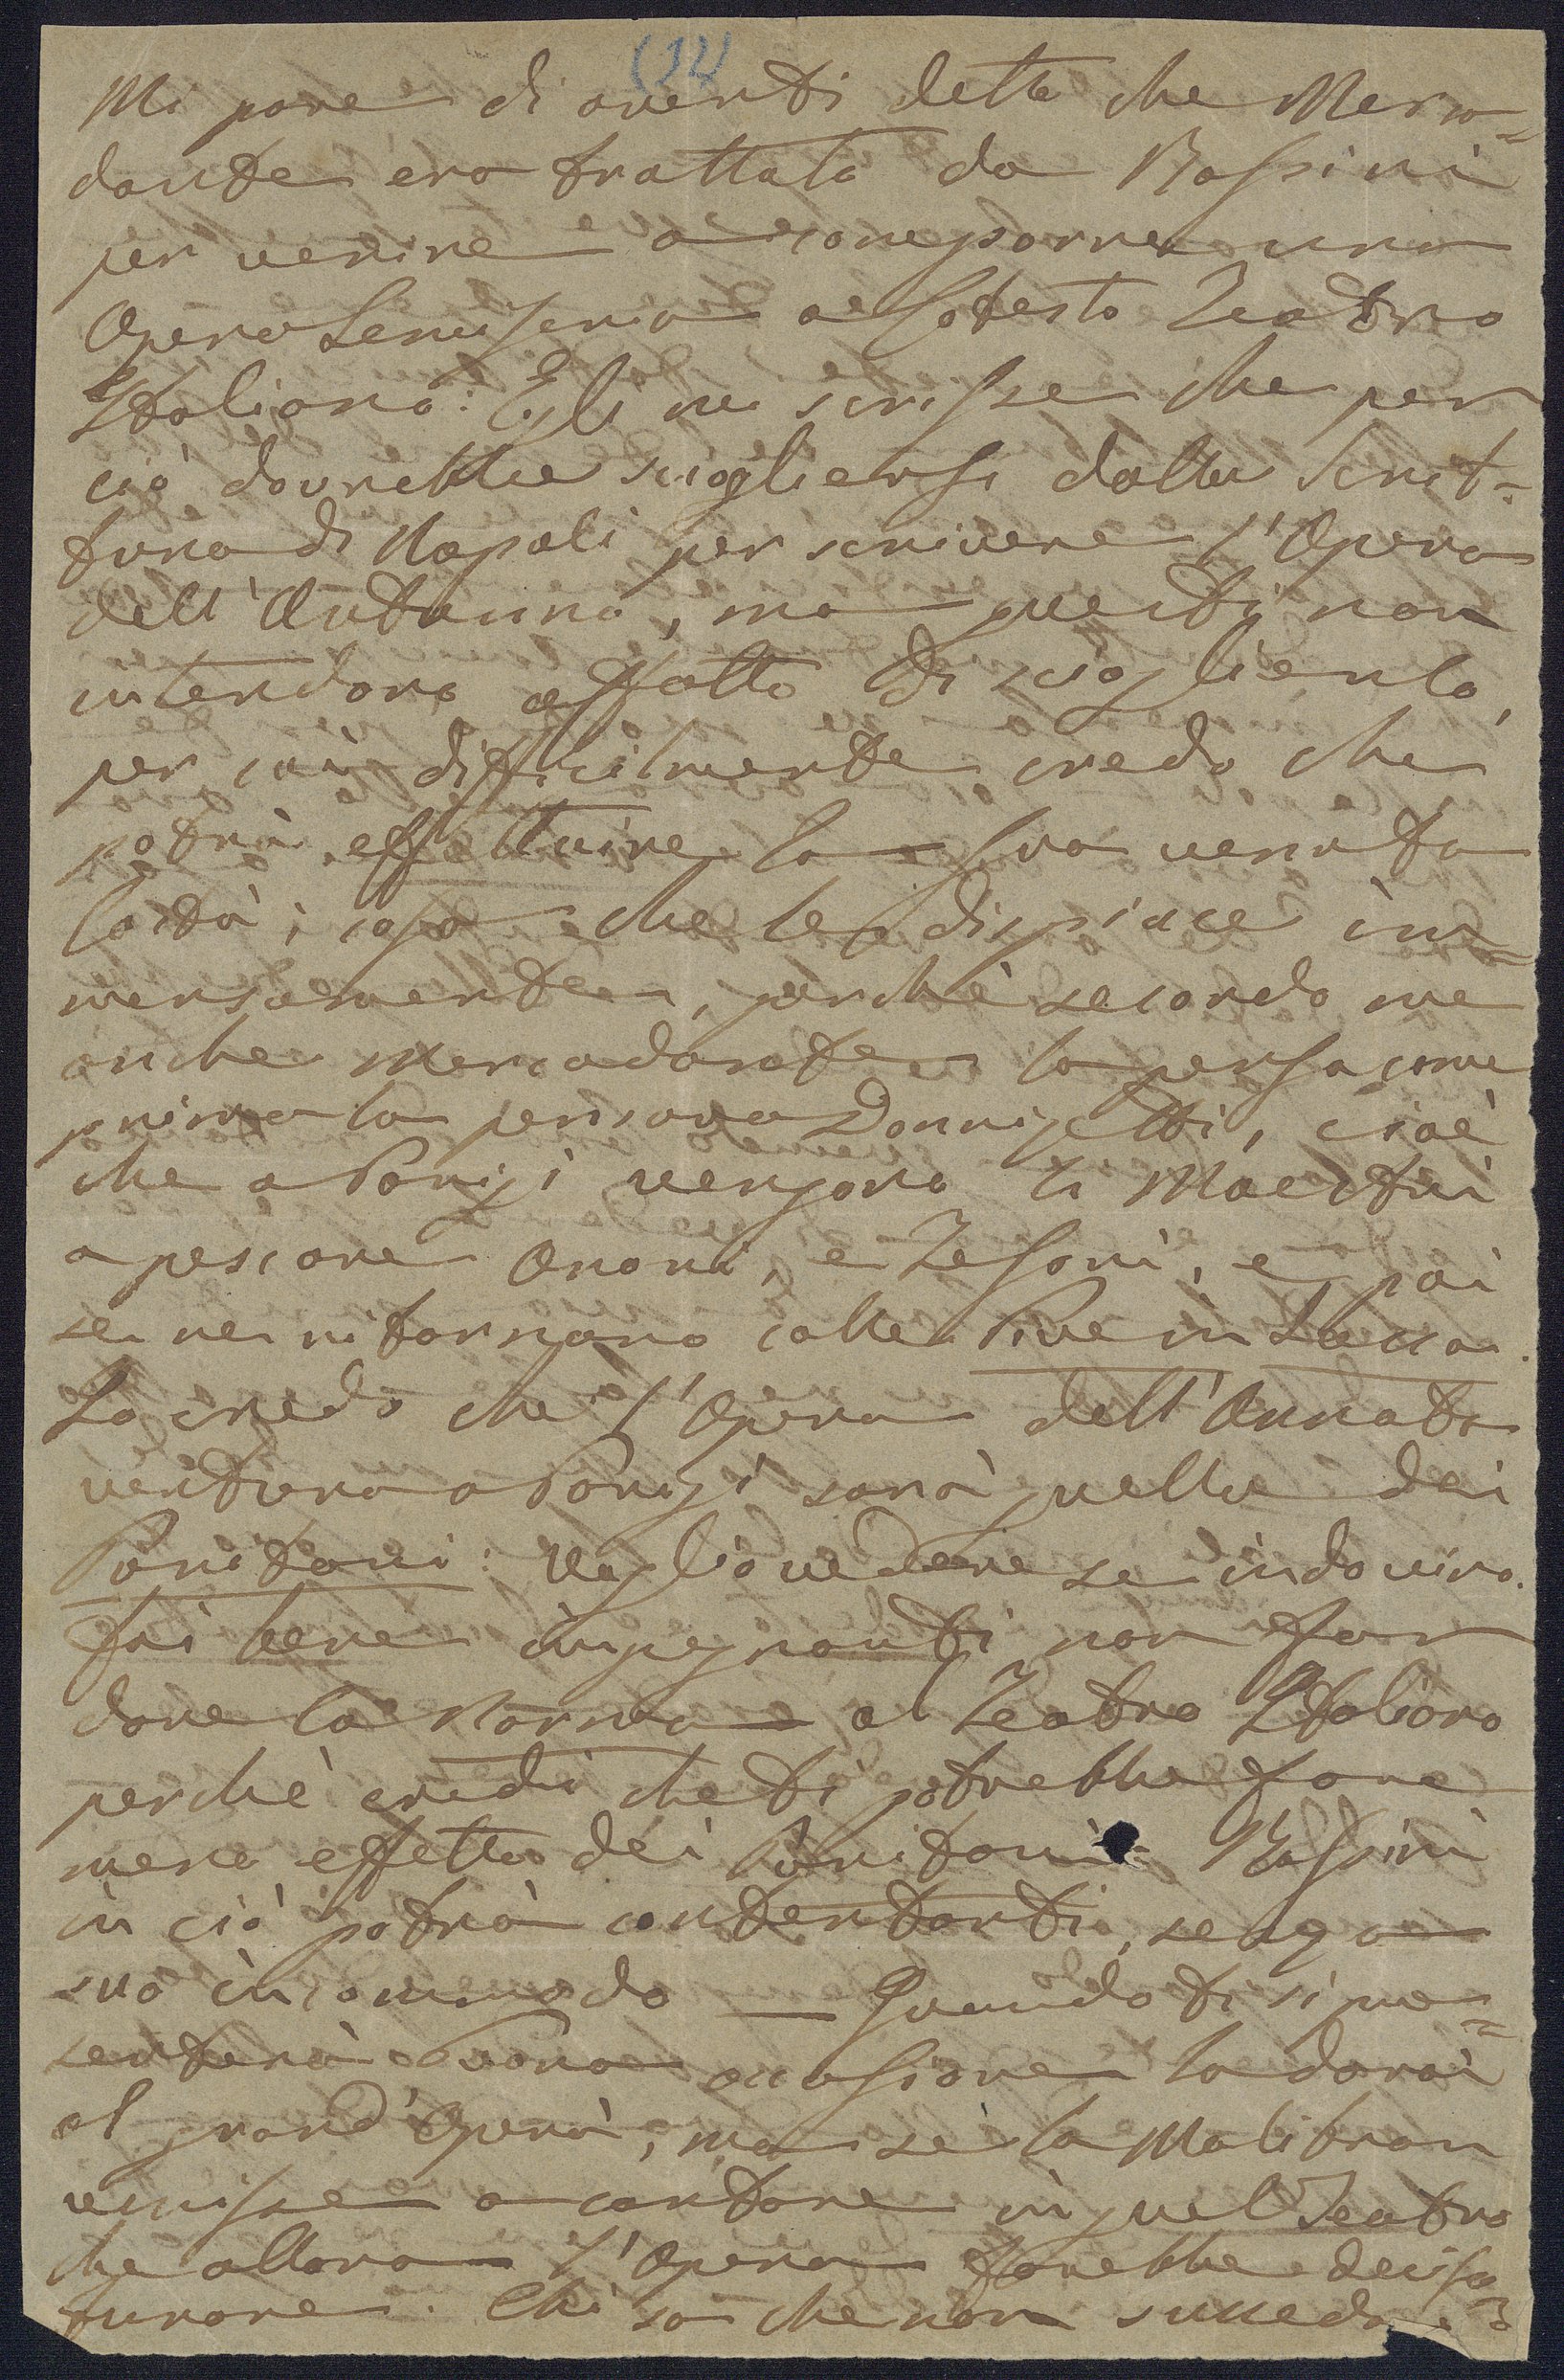 (14)
Mi pare di averti detto che Merca=
dante era trattato da Rossini
per venire a comporre una
Opera Semiseria a cotesto Teatro
Italiano: Egli mi scrisse che per
ciò dovrebbe sciogliersi dalla Scrit=
tura di Napoli per scrivere l'Opera
dell'Autunno, ma questi non
intendono affatto di scioglierlo,
per cui difficilmente credo che
potrà effettuire la sua venuta
costà; cosa che le dispiace im=
mensamente, perchè secondo me
anche Mercadante la pensa come
prima la pensava Donnizetti, cioè
che a Parigi vengono li Maestri
a pescare Onori, e Tesori, e poi
se ne ritornano colle Pive in Sacco.
Io credo che l'Opera dell'Annata
ventura a Parigi sarà quella dei
Puritani: Voglio vedere se indovino.
Fai bene impegnarti non far
dare la Norma al Teatro Italiano
perchè credi che ti potrebbe fare
meno effetto dei Puritani. Rossini
in ciò potrà contentarti, senza
suo incommodo — Quando ti si pre=
senterà buona occasione la darai
al grand'Opera, ma se la Malibran
venisse a cantare in quel Teatro
che allora l'Opera farebbe deciso
furore. Chi sa che non succeda?